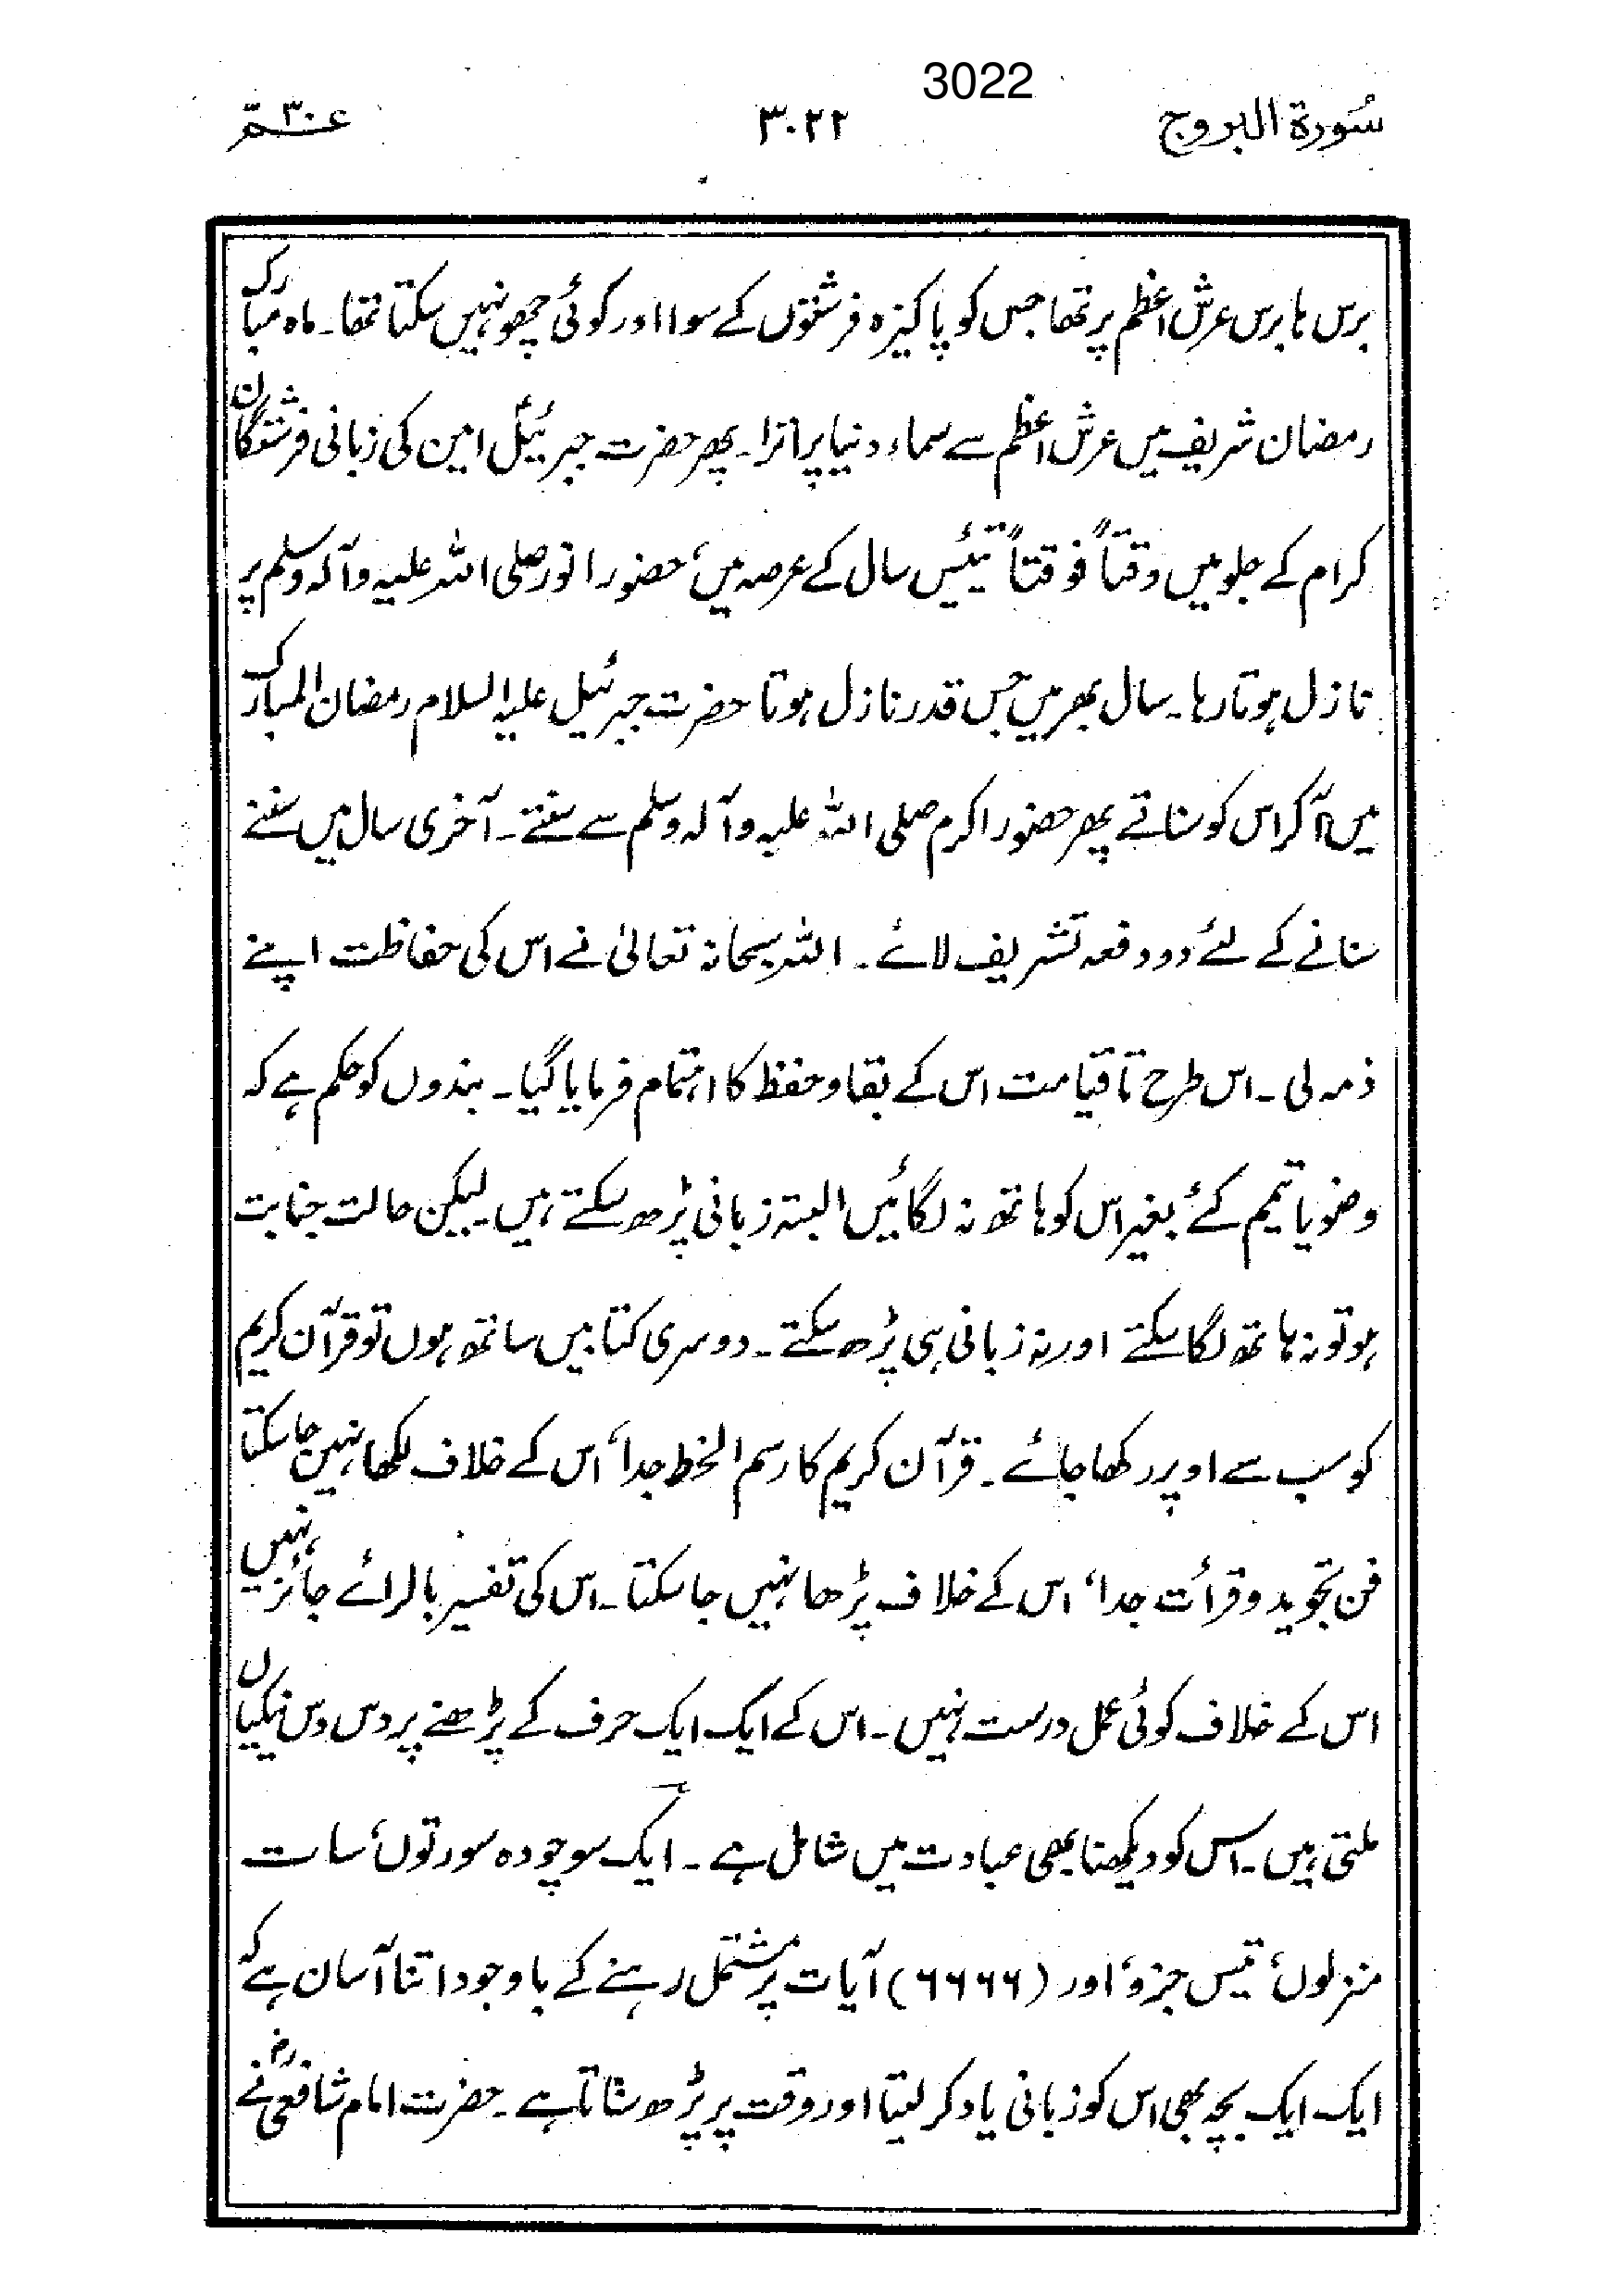 3022
سُورۃ البروج ۳۰۲۲ عم۳۰
برس ہا برس عرش اعظم پر تھا جس کو پاکیزہ فرشتوں کے سوا اور کوئی چھو نہیں سکتا تھا۔ ماہ مبارک
رمضان شریف میں عرش اعظم سے سماء دنیا پر اترا۔ پھر حضرت جبرئیلؑ امین کی زبانی فرشتگان
کرام کے جلو میں وقتاً فوقتاً تیئیس سال کے عرصہ میں، حضور انور صلی اللہ علیہ وآلہ وسلم پر
نازل ہوتا رہا۔ سال بھر میں جس قدر نازل ہوتا حضرت جبرئیل علیہ السلام رمضان المبارک
میں آکر اس کو سناتے پھر حضور اکرم صلی اللہ علیہ وآلہ وسلم سے سنتے۔ آخری سال میں سننے
سنانے کے لئے دو دفعہ تشریف لائے۔ اللہ سبحانہ تعالیٰ نے اس کی حفاظت اپنے
ذمہ لی۔ اس طرح تا قیامت اس کے بقا و حفظ کا اہتمام فرمایا گیا۔ بندوں کو حکم ہے کہ
وضو یا تیمم کئے بغیر اس کو ہاتھ نہ لگائیں البتہ زبانی پڑھ سکتے ہیں لیکن حالت جنابت
ہو تو نہ ہاتھ لگا سکتے اور نہ زبانی ہی پڑھ سکتے۔ دوسری کتابیں ساتھ ہوں تو قرآن کریم
کو سب سے اوپر رکھا جائے۔ قرآن کریم کا رسم الخط جدا، اس کے خلاف لکھا نہیں جا سکتا
فن تجوید و قرأت جدا، اس کے خلاف پڑھا نہیں جا سکتا۔ اس کی تفسیر بالرائے جائز نہیں
اس کے خلاف کوئی عمل درست نہیں۔ اس کے ایک ایک حرف کے پڑھنے پر دس دس نیکیاں
ملتی ہیں۔ اس کو دیکھنا بھی عبادت میں شامل ہے۔ ایک سو چودہ سورتوں، سات
منزلوں، تیس جزو، اور (۶۶۶۶) آیات پر مشتمل رہنے کے باوجود اتنا آسان ہے کہ
ایک ایک بچہ بھی اس کو زبانی یاد کر لیتا اور وقت پر پڑھ سناتا ہے۔ حضرت امام شافعیؒ نے